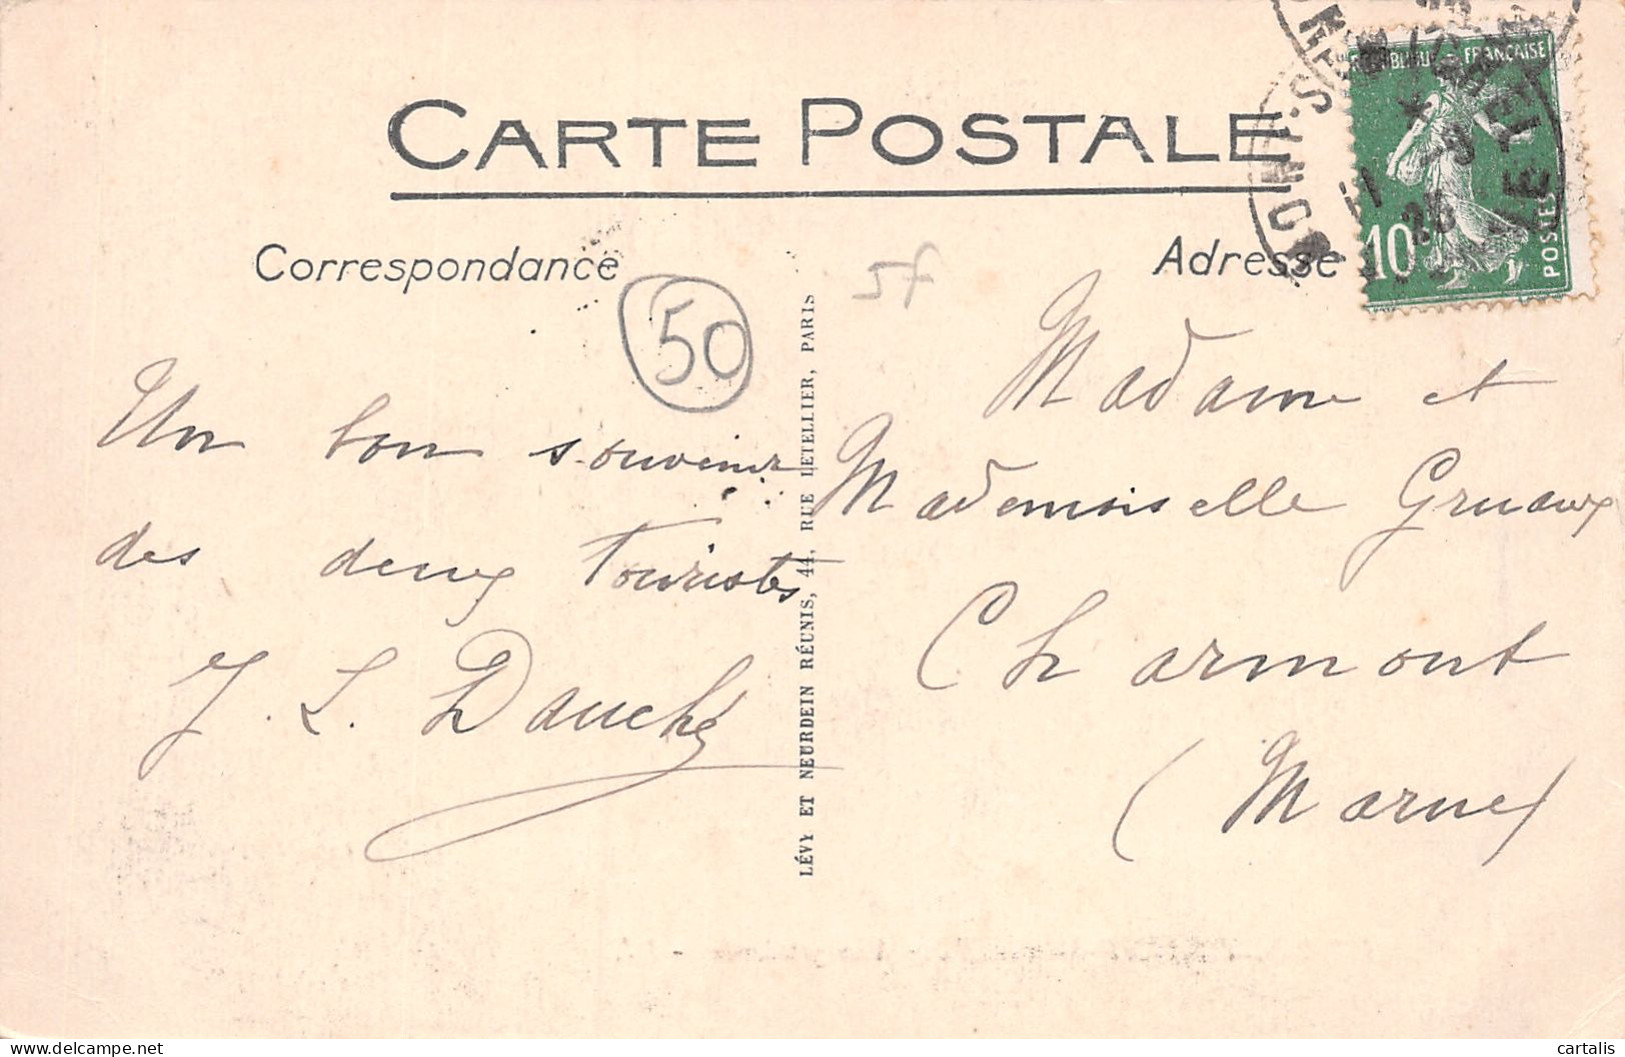 CARTE POSTALE
Correspondance
Adresse
RÉPUBLIQUE FRANÇAISE
10
POSTES
50
57
Un bon souvenir
des deux Touristes
J. L. Dauché
LÉVY ET NEURDEIN RÉUNIS, 44, RUE LETELLIER, PARIS
Madame et
Mademoiselle Gruaux
Charmont
(Marne)
cartalis